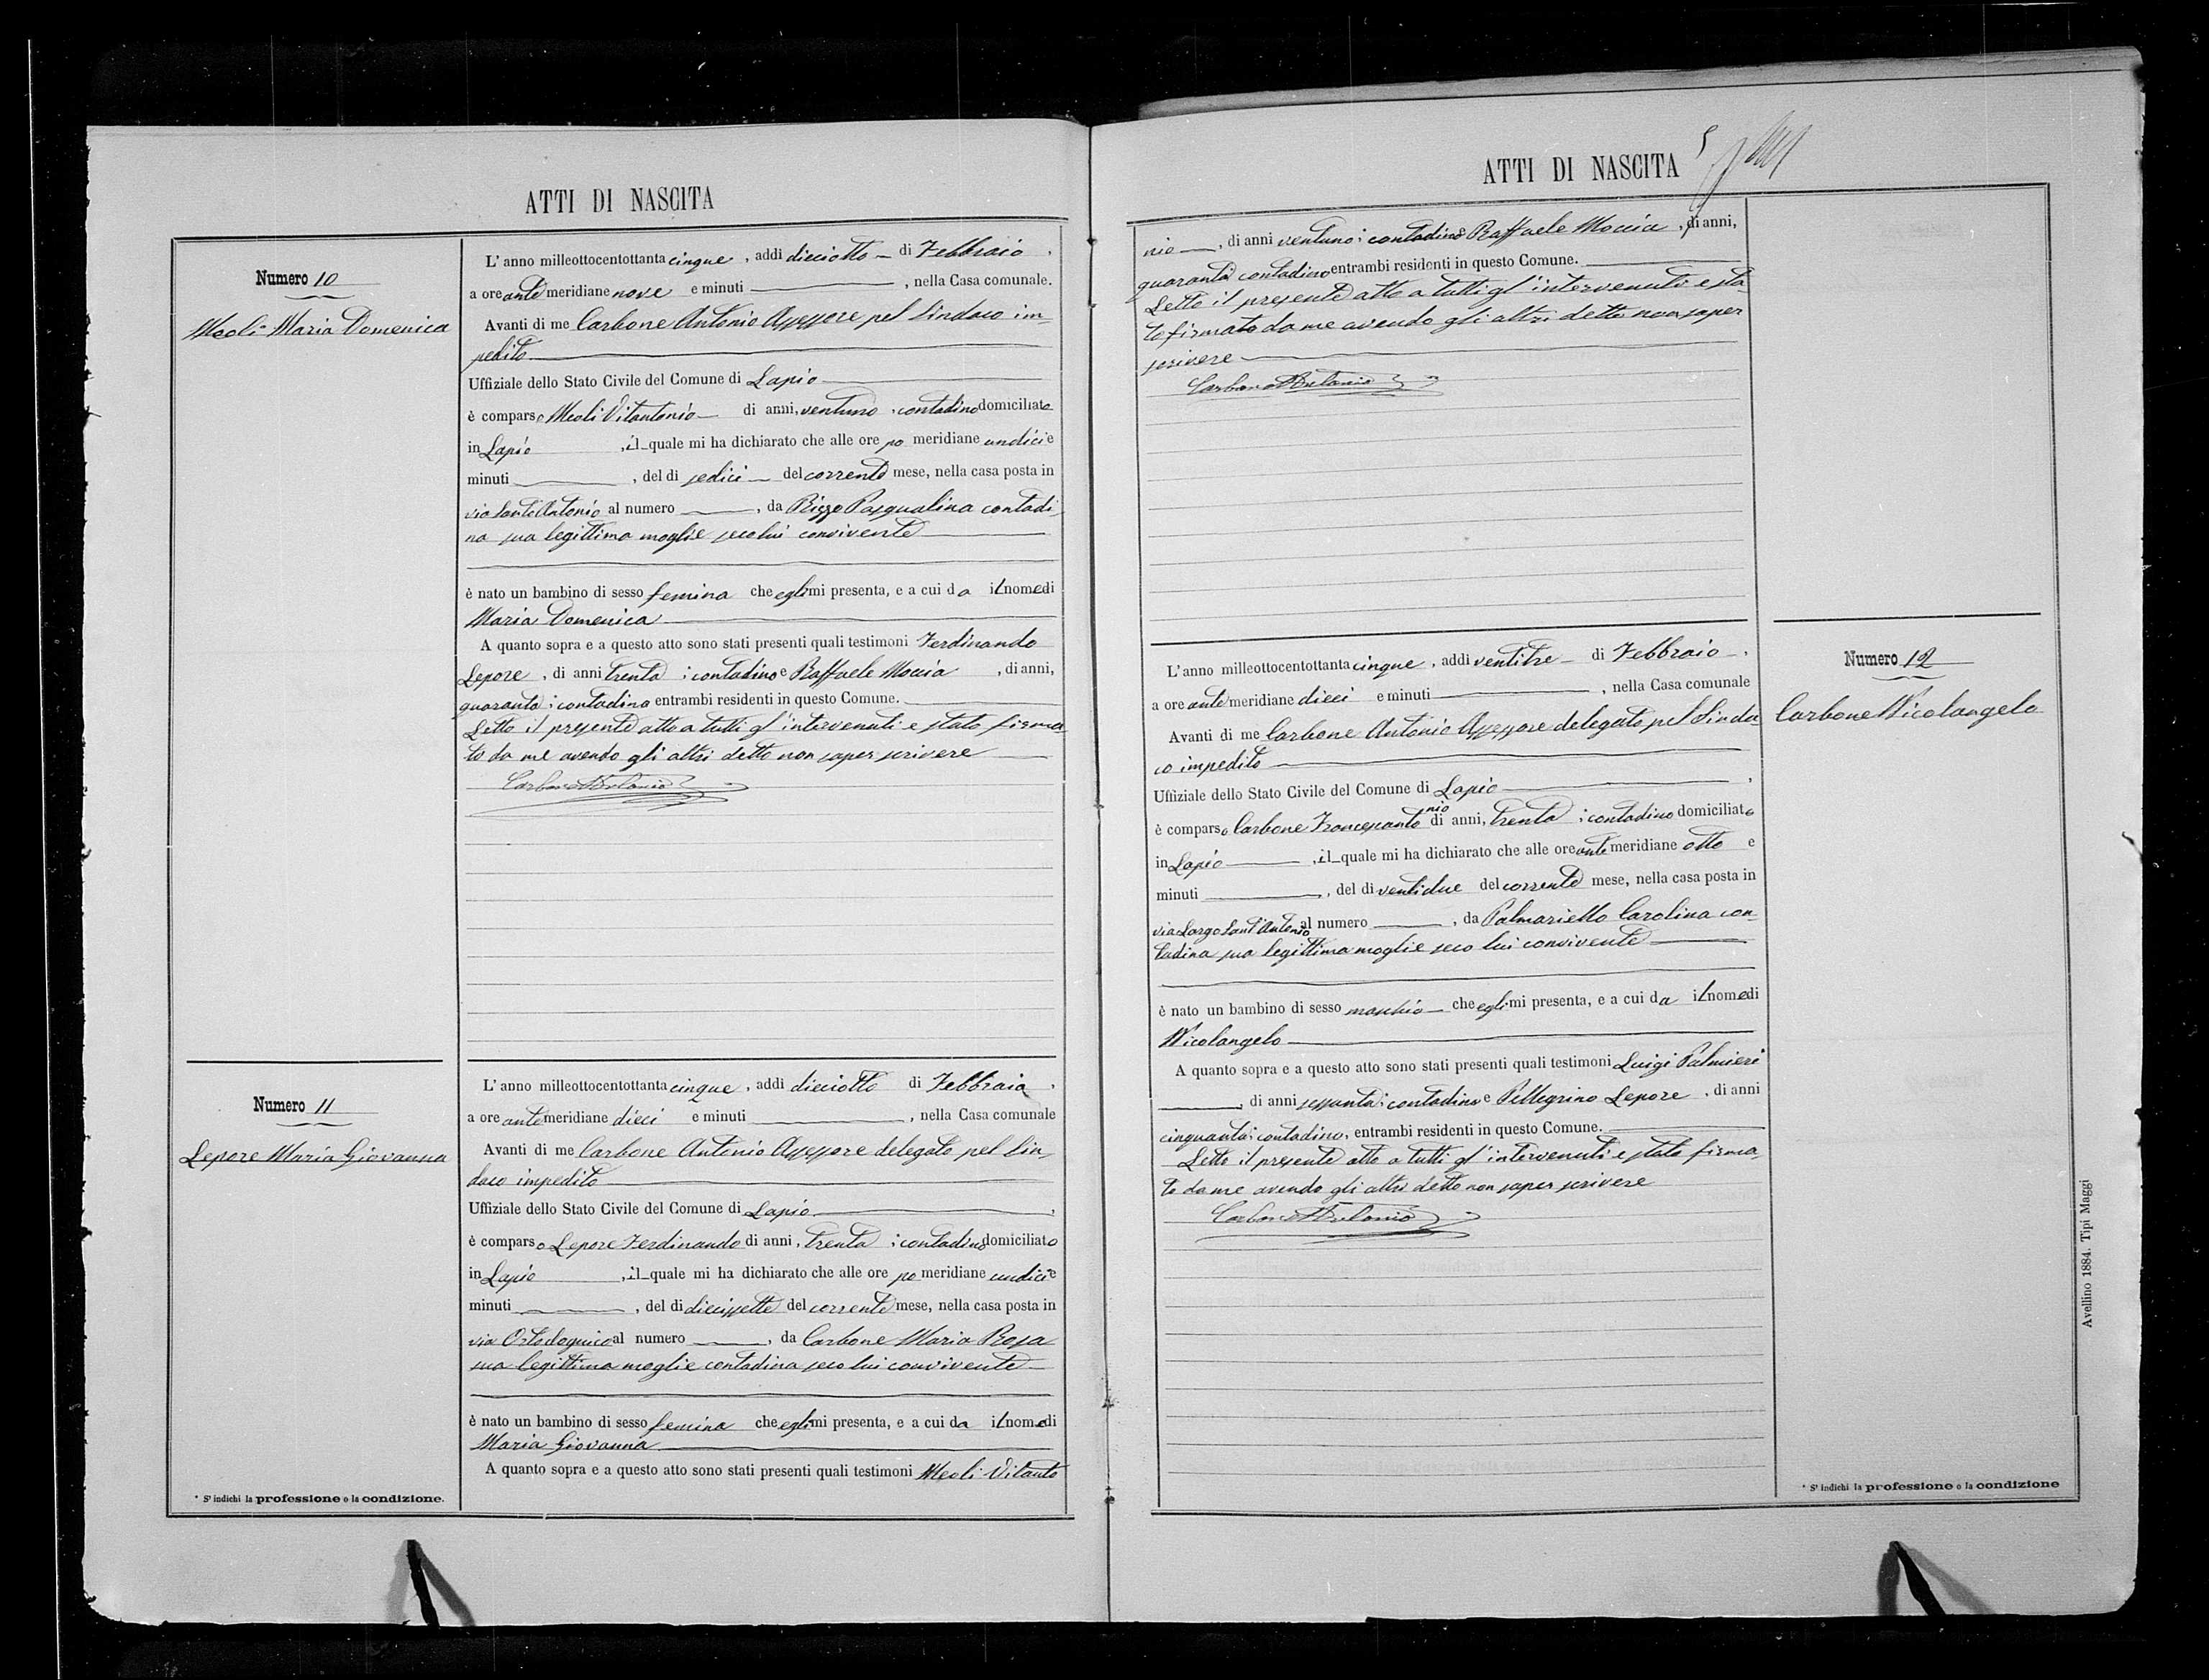 ATTI DI NASCITA
Numero 10
Meoli Maria Domenica
L' anno milleottocentottanta cinque, addi dieciotto di Febbraio,
a ore ante meridiane nove e minuti , nella Casa comunale.
Avanti di me Carbone Antonio Assessore pel Sindaco im-
pedito
Uffiziale dello Stato Civile del Comune di Lapio
è comparso Meoli Vitantonio di anni, ventuno, contadino domiciliato
in Lapio , il quale mi ha dichiarato che alle ore po meridiane undici e
minuti , del di sedici del corrente mese, nella casa posta in
via Santo Antonio al numero , da Rizzo Pasqualina contadi-
na sua legittima moglie seco lui convivente
è nato un bambino di sesso femina che egli mi presenta, e a cui da il nome di
Maria Domenica
A quanto sopra e a questo atto sono stati presenti quali testimoni Ferdinando
Lepore, di anni trenta; contadino e Raffaele Moccia , di anni,
quaranta; contadino entrambi residenti in questo Comune.
Letto il presente atto a tutti gl' intervenuti e stato firma-
to da me avendo gli altri detto non saper scrivere
Carbone Antonio
Numero 11
Lepore Maria Giovanna
L' anno milleottocentottanta cinque, addi dieciotto di Febbraio,
a ore ante meridiane dieci e minuti , nella Casa comunale
Avanti di me Carbone Antonio Assessore delegato pel Sin-
daco impedito
Uffiziale dello Stato Civile del Comune di Lapio,
è comparso Lepore Ferdinando di anni, trenta; contadino domiciliato
in Lapio , il quale mi ha dichiarato che alle ore po meridiane undici e
minuti , del di diecissette del corrente mese, nella casa posta in
via al numero , da Carbone Maria Rosa
sua legittima moglie contadina seco lui convivente
è nato un bambino di sesso femina che egli mi presenta, e a cui da il nome di
Maria Giovanna
A quanto sopra e a questo atto sono stati presenti quali testimoni Meoli Vitanto
* S' indichi la professione o la condizione.
ATTI DI NASCITA 5
nio , di anni ventuno; contadino e Raffaele Moccia, di anni,
quaranta contadino entrambi residenti in questo Comune.
Letto il presente atto a tutti gl' intervenuti e sta-
to firmato da me avendo gli altri detto non saper
scrivere
Carbone Antonio
Numero 12
Carbone Nicolangelo
L' anno milleottocentottanta cinque, addi ventitre di Febbraio,
a ore ante meridiane dieci e minuti , nella Casa comunale
Avanti di me Carbone Antonio Assessore delegato pel Sinda-
co impedito
Uffiziale dello Stato Civile del Comune di Lapio,
è comparso Carbone Francescantonio di anni, trenta; contadino domiciliato
in Lapio , il quale mi ha dichiarato che alle ore ante meridiane otto e
minuti , del di ventidue del corrente mese, nella casa posta in
via Largo Sant'Antonio al numero , da Palmariello Carolina con-
tadina sua legittima moglie seco lui convivente
è nato un bambino di sesso maschio che egli mi presenta, e a cui da il nome di
Nicolangelo
A quanto sopra e a questo atto sono stati presenti quali testimoni Luigi Palmieri
, di anni sessanta; contadino e Pellegrino Lepore, di anni
cinquanta; contadino, entrambi residenti in questo Comune.
Letto il presente atto a tutti gl' intervenuti e stato firma-
to da me avendo gli altri detto non saper scrivere
Carbone Antonio
* S' indichi la professione o la condizione
Avellino 1884. Tipi Maggi